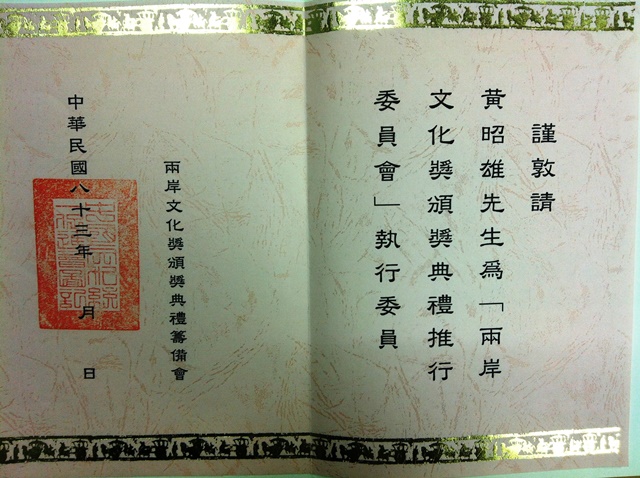 謹敦請
黃昭雄先生為「兩岸
文化獎頒獎典禮推行
委員會」執行委員
兩岸文化獎頒獎典禮籌備會
中華民國八十三年 月 日